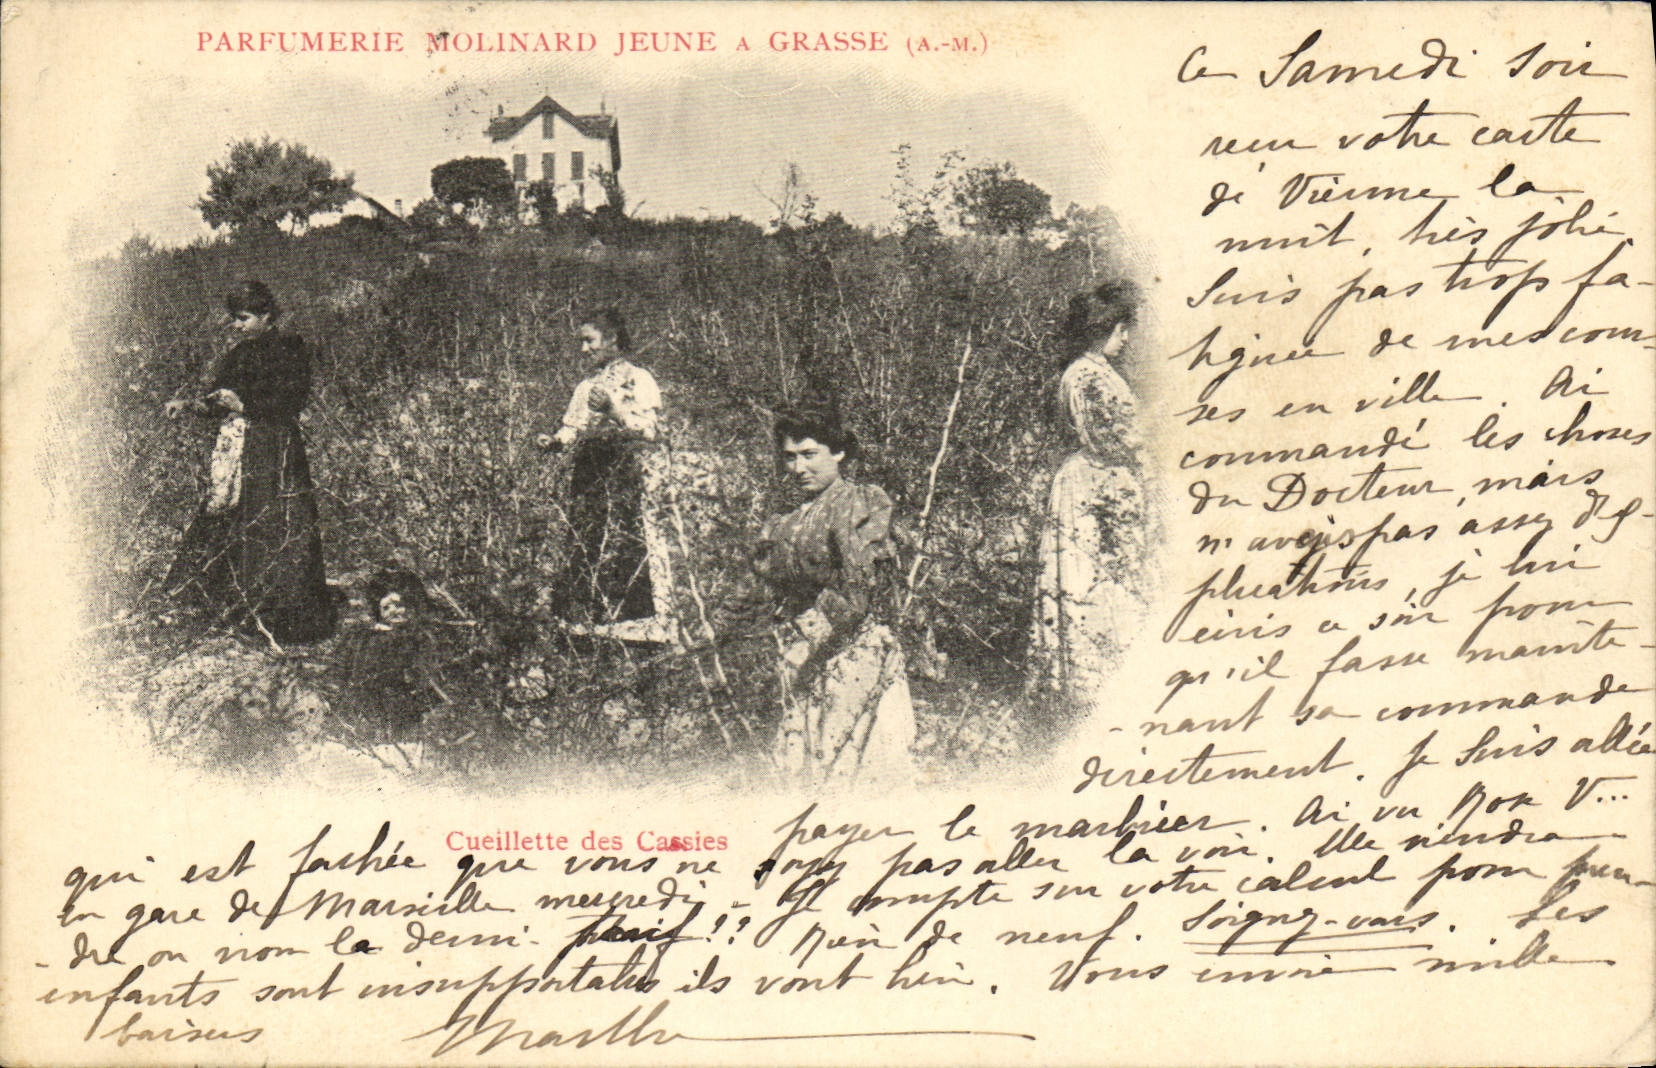 PARFUMERIE MOLINARD JEUNE A GRASSE (A.-M.)
Ce Samedi soir
reçu votre carte
de Vienne la
nuit, très jolie.
Suis pas trop fa-
tiguée de mes cour-
ses en ville. Ai
commandé les choses
du Docteur, mais
n'avais pas assez d'ex-
plications, je lui
écris ce soir pour
qu'il fasse mainte-
-nant sa commande
directement. Je suis allée
payer le marbrier. Ai vu Mme V...
Cueillette des Cassies
qui est fachée que vous ne soyez pas allée la voir. Elle viendra
en gare de Marseille mercredi - Je compte sur votre calcul pour pren-
-dre ou non la demi- !? Rien de neuf. Soignez-vous. Les
enfants sont insupportables ils vont bien. Vous envoie mille
baisers Marthe